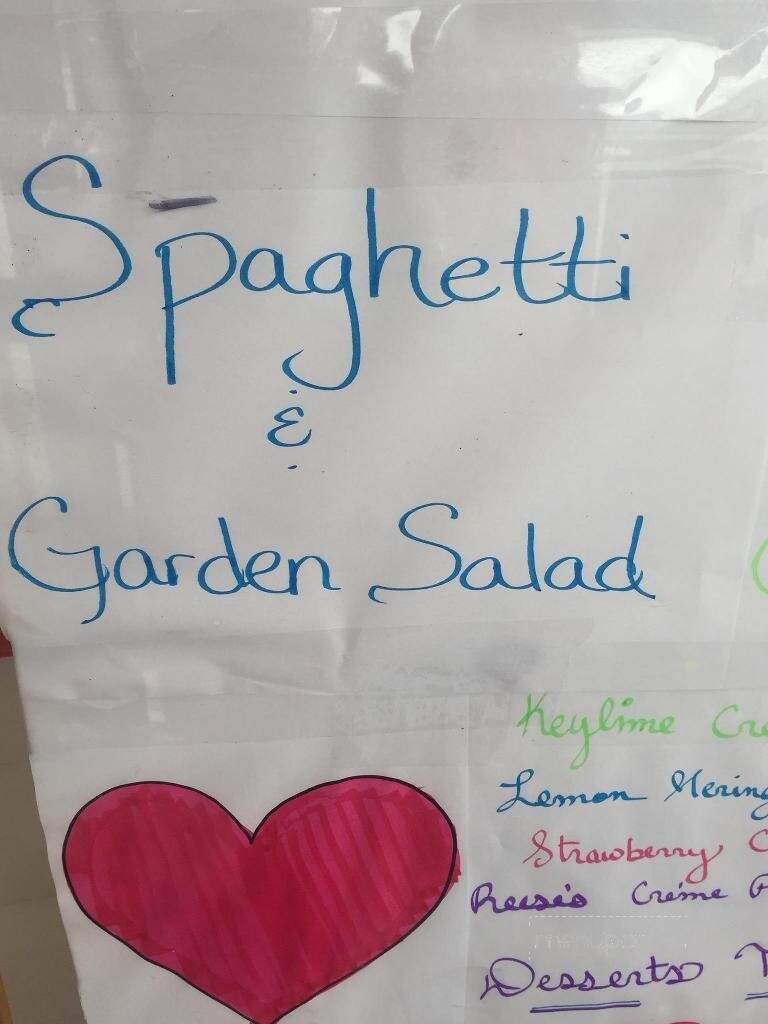 Spaghetti
&
Garden Salad
Keylime Cre
Lemon Mering
Strawberry C
Reese's Créme P
menupix
Desserts